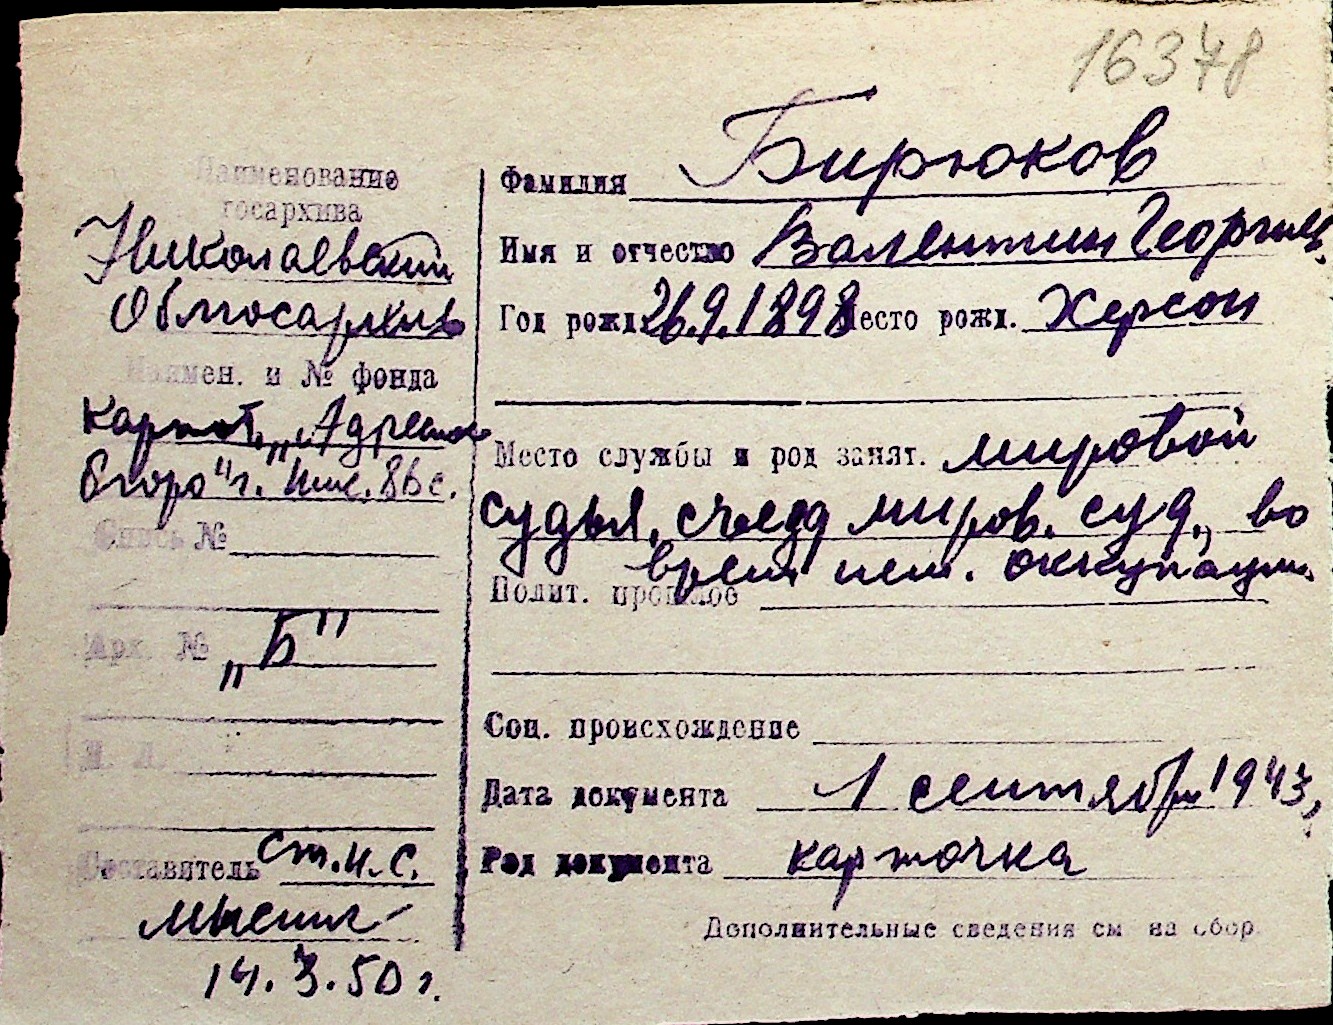 16378
Наименование
госархива
Николаевский
Облгосархив
Наимен. и № фонда
картот. „Адресное
бюро" г. Ник. 86 с.
Опись №
Арх. № „Б"
К. Л.
Составитель ст.н.с.
14.3.50 г.
Фамилия Бирюков
Имя и отчество Валентин Георгиев.
Год рожд. 26.9.1898 Место рожд. Херсон
Место службы и род занят. мировой
судья, съезд миров. суд., во
время нем. оккупации
Полит. прошлое
Соц. происхождение
Дата документа 1 сентября 1943,
Род документа карточка
Дополнительные сведения см на обор